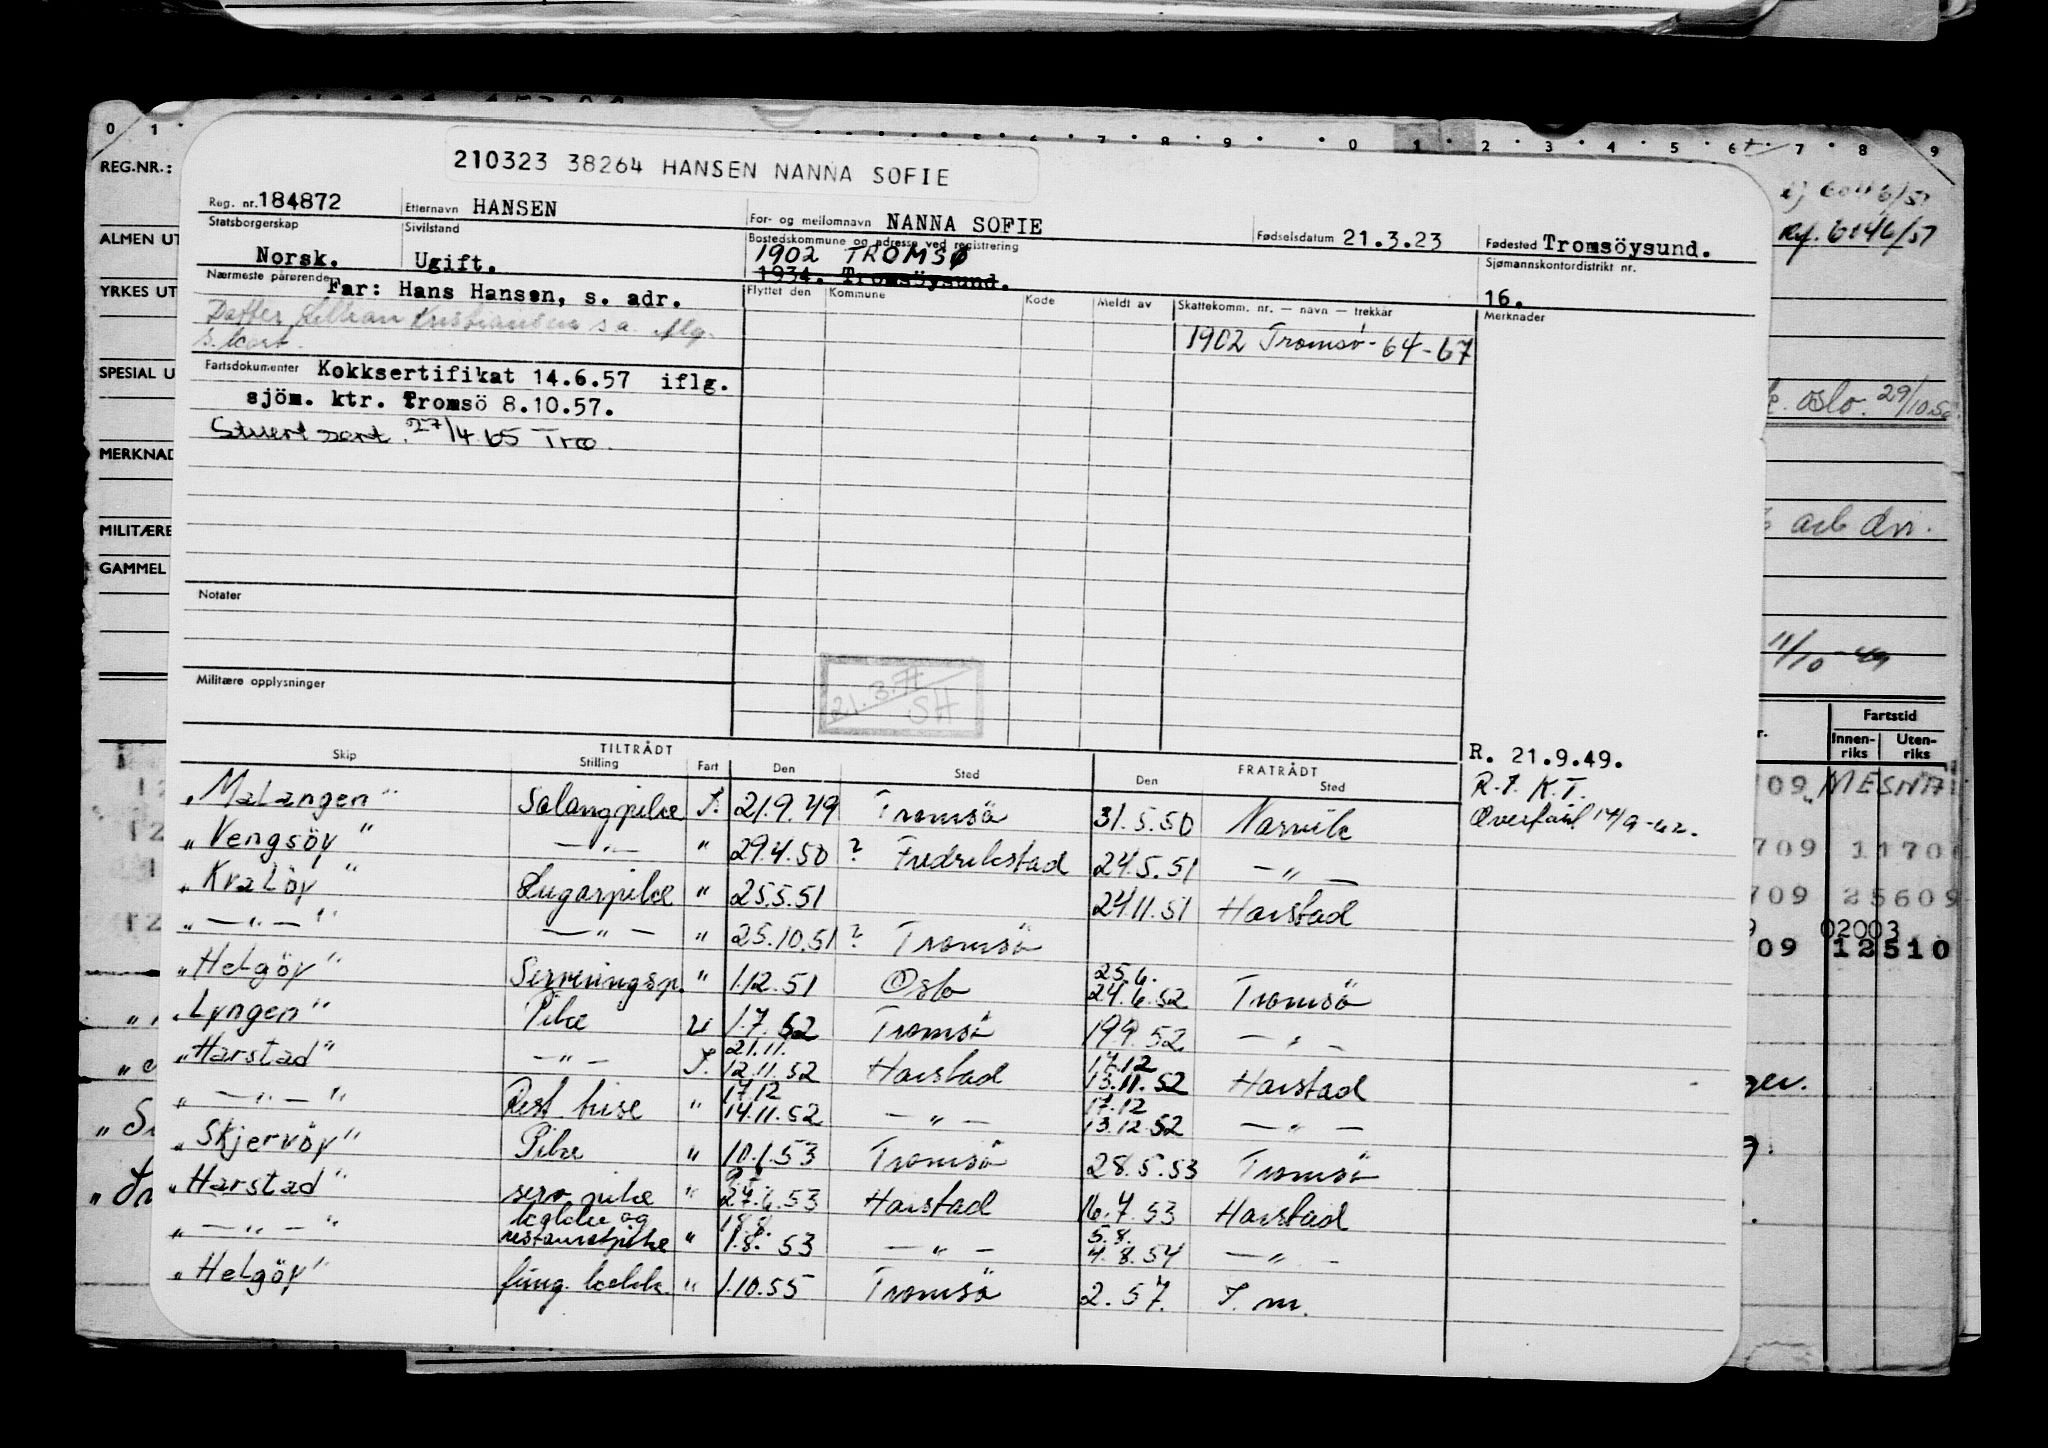 210323 38264 HANSEN NANNA SOFIE
REG.NR.:
ALMEN UT
YRKES UT
SPESIAL U
MERKNAD
MILITÆRE
GAMMEL
Reg. nr. 184872 Etternavn HANSEN For- og mellomnavn NANNA SOFIE Fødselsdatum 21.3.23 Fødested Tromsöysund.
Statsborgerskap Norsk. Sivilstand Ugift. Bostedskommune og adresse ved registrering 1902 TROMSØ Sjømannskontordistrikt nr. 16.
1934. Tromsöysund.
Nærmeste pårørende Far: Hans Hansen, s. adr.
Datter Lillian Kristiansen s a iflg.
s. kort.
Flyttet den Kommune Kode Meldt av Skattekomm. nr. — navn — trekkår Merknader
1902 Tromsö - 64-67
Fartsdokumenter Kokksertifikat 14.6.57 iflg.
sjöm. ktr. Tromsö 8.10.57.
Stuert sert. 27/4 65 Tro.
Notater
Militære opplysninger
21.3.71
SH
TILTRÅDT FRATRÅDT
Skip Stilling Fart Den Sted Den Sted
R. 21.9.49.
R.T. K.T.
Overført 14/9-62.
"Malangen" Salongpike I. 21.9.49 Tromsö 31.5.50 Narvik
"Vengsöy" — " — " 29.4.50 ? Fredrikstad 24.5.51 — " —
"Kvalöy" Lugarpike " 25.5.51 24.11.51 Harstad
" — " — " — " — " 25.10.51 ? Tromsö
"Helgöy" Serveringsp. " 1.12.51 Oslo 25.6. 24.6.52 Tromsö
"Lyngen" Pike U 1.7.52 Tromsö 19.9.52 — " —
"Harstad" — " — I. 21.11. 12.11.52 Harstad 17.12 13.11.52 Harstad
" — " — " Rest. " 17.12 14.11.52 — " — 17.12 13.12.52 — " —
"Skjervöy" Pike " 10.1.53 Tromsö 28.5.53 Tromsö
"Harstad" serv. pike " 27.6.53 Harstad 16.7.53 Harstad
" — " — " kokke og restauratpike " 18.8. 1.8.53 — " — 5.8. 4.8.54 — " —
"Helgöy" fung. kokk. " 1.10.55 Tromsö 2.57. I. m.
Ref. 6846/57
Oslo. 29/10.56
arb dir.
11/10-49
Fartstid
Innen-riks Uten-riks
09 MESNA
709 11706
709 25609
02003
09 12510